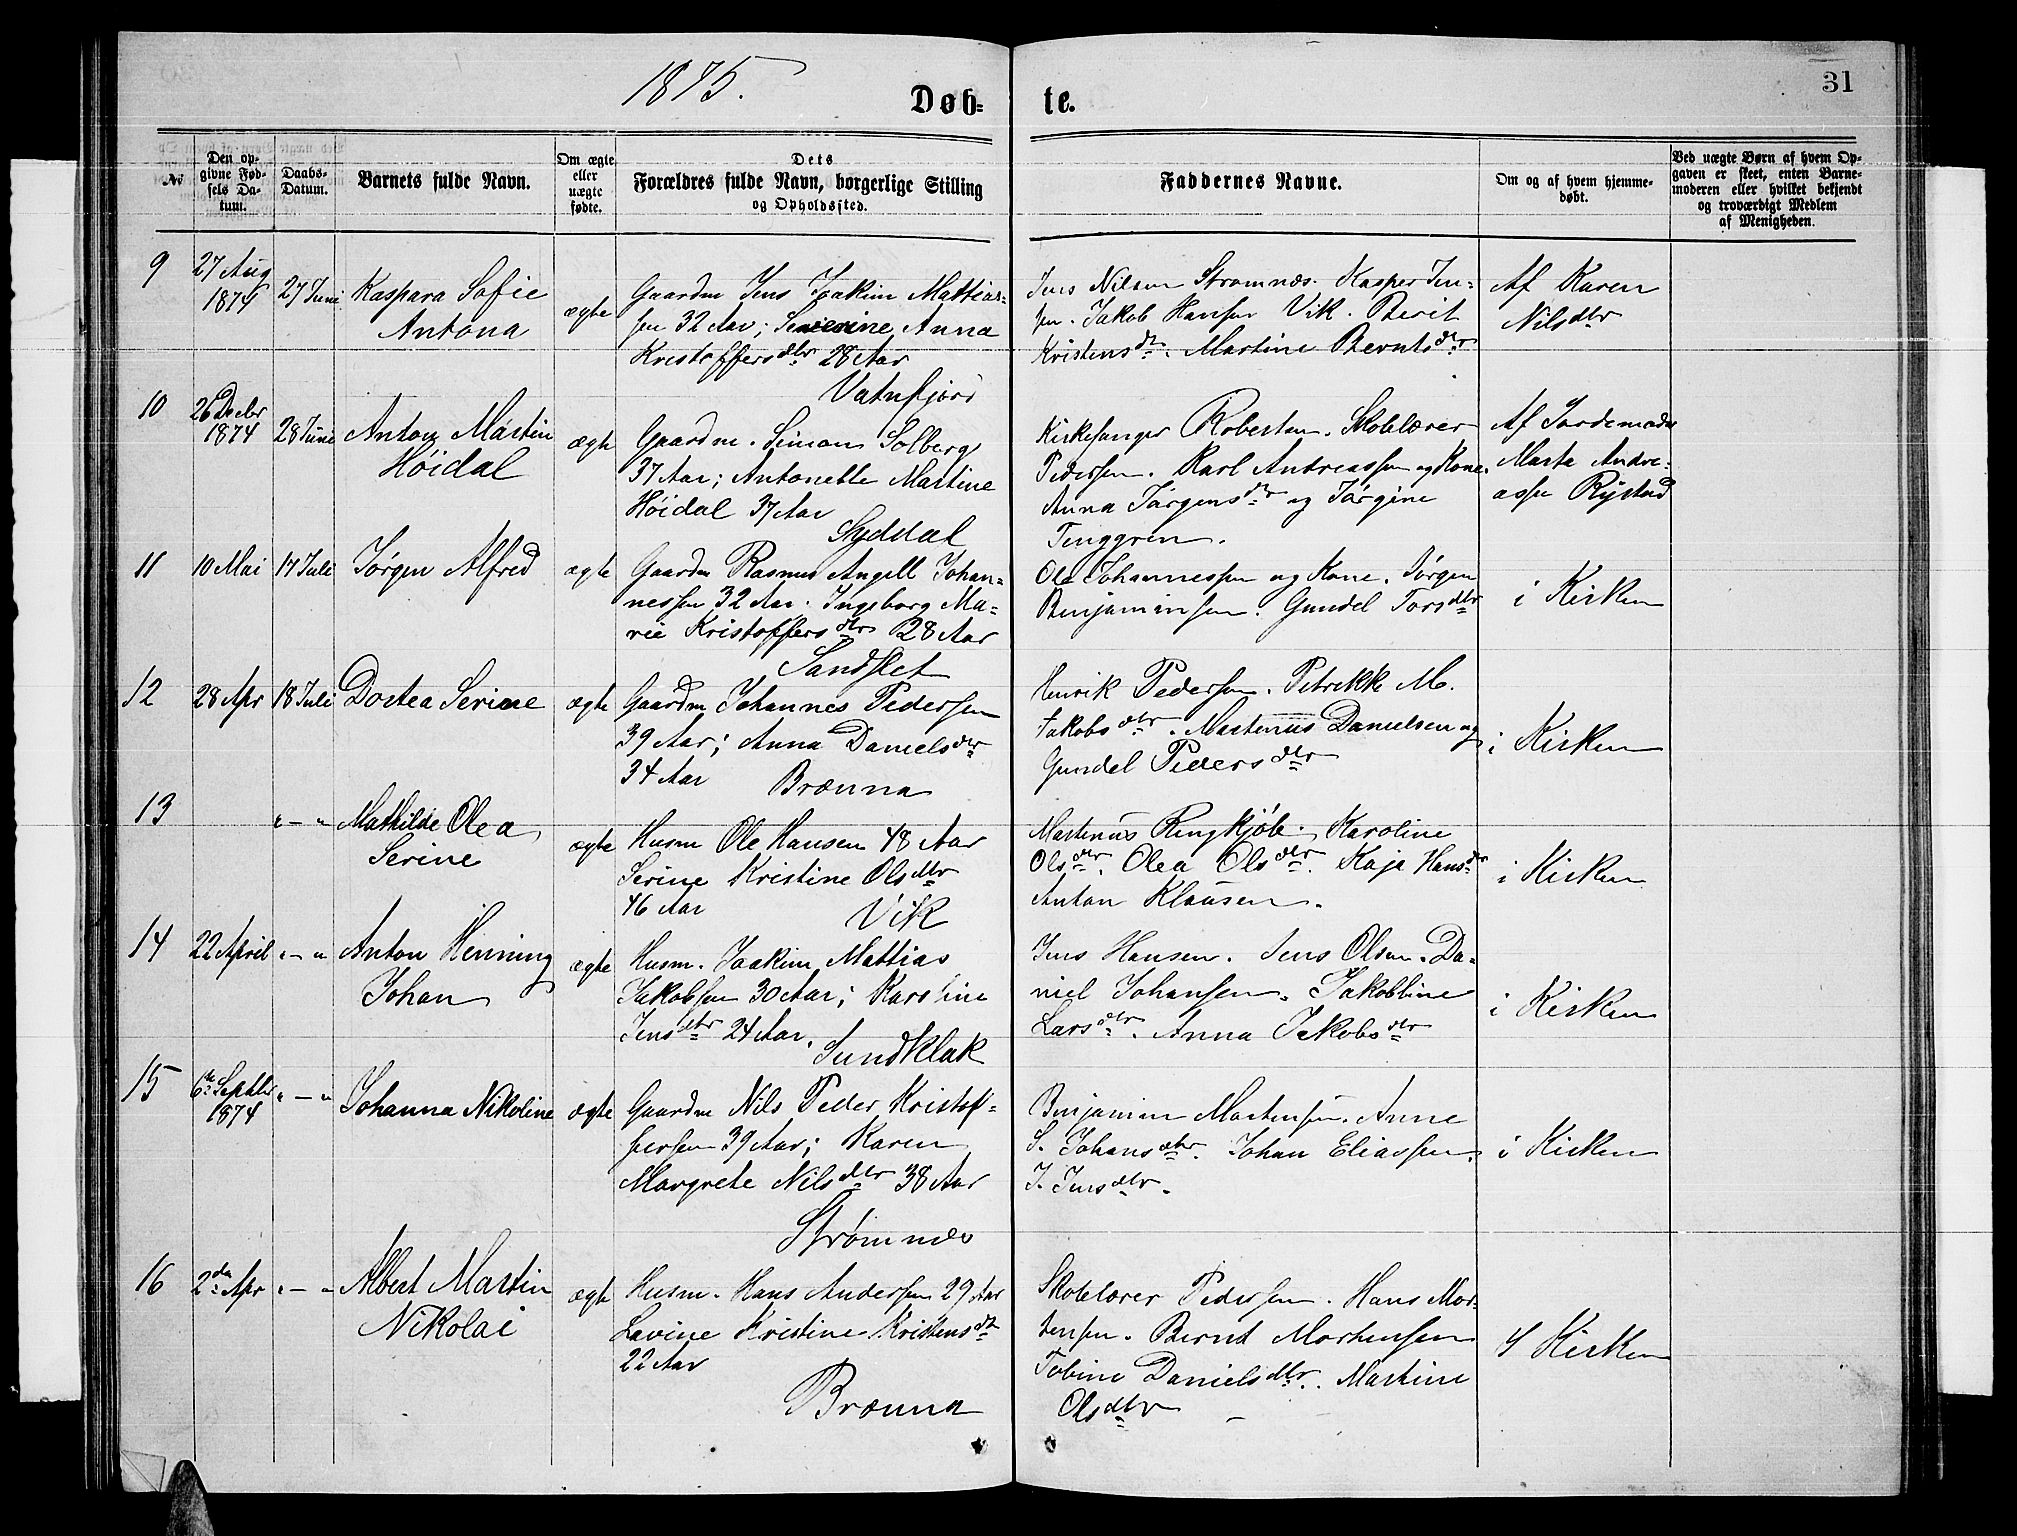 1875.
Døb-
te.
31
№
Den op-
givne Fød-
sels Da-
tum.
Daabs-
Datum.
Barnets fulde Navn.
Om ægte
eller
uægte
fødte.
Dets
Forældres fulde Navn, borgerlige Stilling
og Opholdssted.
Faddernes Navne.
Om og af hvem hjemme-
døbt.
Ved uægte Børn af hvem Op-
gaven er skeet, enten Barne-
moderen eller hvilket bekjendt
og troværdigt Medlem
af Menigheden.
9
27 Aug
1874
27 Juni
Kaspara Sofie
Antona
ægte
Gaardm Jens Joakim Mattias-
sen 32 Aar; Anna
Kristoffersdtr 28 Aar
Vatnfjord
Jens Nilsen Strømnæs. Kasper Jen-
sen. Jakob Hansen Vik. Berit
Kristensdt. Martine Berntsdtr
Af Karen
Nilsdtr
10
26 Decbr
1874
28 Juni
Anton Martin
Höidal
ægte
Gaardm. Simon Solberg
37 Aar; Antonette Martine
Höidal 37 Aar
Syddal
Kirkesanger Robertsen. Skolelærer
Pedersen. Karl Andreassen og Kone.
Anna Jörgensdtr og Jörgine
Tenggren.
Af Jordemoder
Marta Andre-
assen Rystad
11
10 Mai
17 Juli
Jörgen Alfred
ægte
Gaardm Rasmus Angell Johan-
nessen 32 Aar. Ingeborg Ma-
rie Kristoffersdtr 28 Aar
Sandslet
Ole Johannessen og Kone. Jörgen
Benjaminsen. Gundel Torsdtr
i Kirken
12
28 Apr
18 Juli
Dortea Serine
ægte
Gaardm Johannes Pedersen
39 Aar; Anna Danielsdtr
34 Aar
Brænna
Henrik Pedersen. Petrikke M.
Jakobsdtr. Martinus Danielsen og
Gundel Pedersdtr
i Kirken
13
" — "
Mathilde Olea
Serine
ægte
Husm Ole Hansen 48 Aar
Serine Kristine Olsdtr
46 Aar
Vik
Martinus Ringkjöb. Karoline
Olsdtr. Olea Olsdtr. Kaja Hansdtr
Anton Klausen.
i Kirken
14
22 April
" — "
Anton Henning
Johan
ægte
Husm. Joakim Mattias
Jakobsen 30 Aar; Karoline
Jensdtr 24 Aar.
Sundklak
Jens Hansen. Jens Olsen. Da-
niel Johansen. Jakobbine
Larsdtr. Anna Jakobsdtr
i Kirken
15
6te Septbr
1874
" — "
Johanna Nikoline
ægte
Gaardm Nils Peder Kristof-
fersen 39 Aar; Karen
Margrete Nilsdtr 38 Aar
Strömnæs
Benjamin Martensen. Anne
S. Johansdtr. Johan Eliassen.
J. Jensdtr.
i Kirken
16
2den Apr
" — "
Albert Martin
Nikolai
ægte
Husm. Hans Andersen 29 Aar
Lavine Kristine Kristensdt
22 Aar
Brænna
Skolelærer Pedersen. Hans Mor-
tensen. Bernt Mortensen
Tobine Danielsdtr. Martine
Olsdtr —
I Kirken